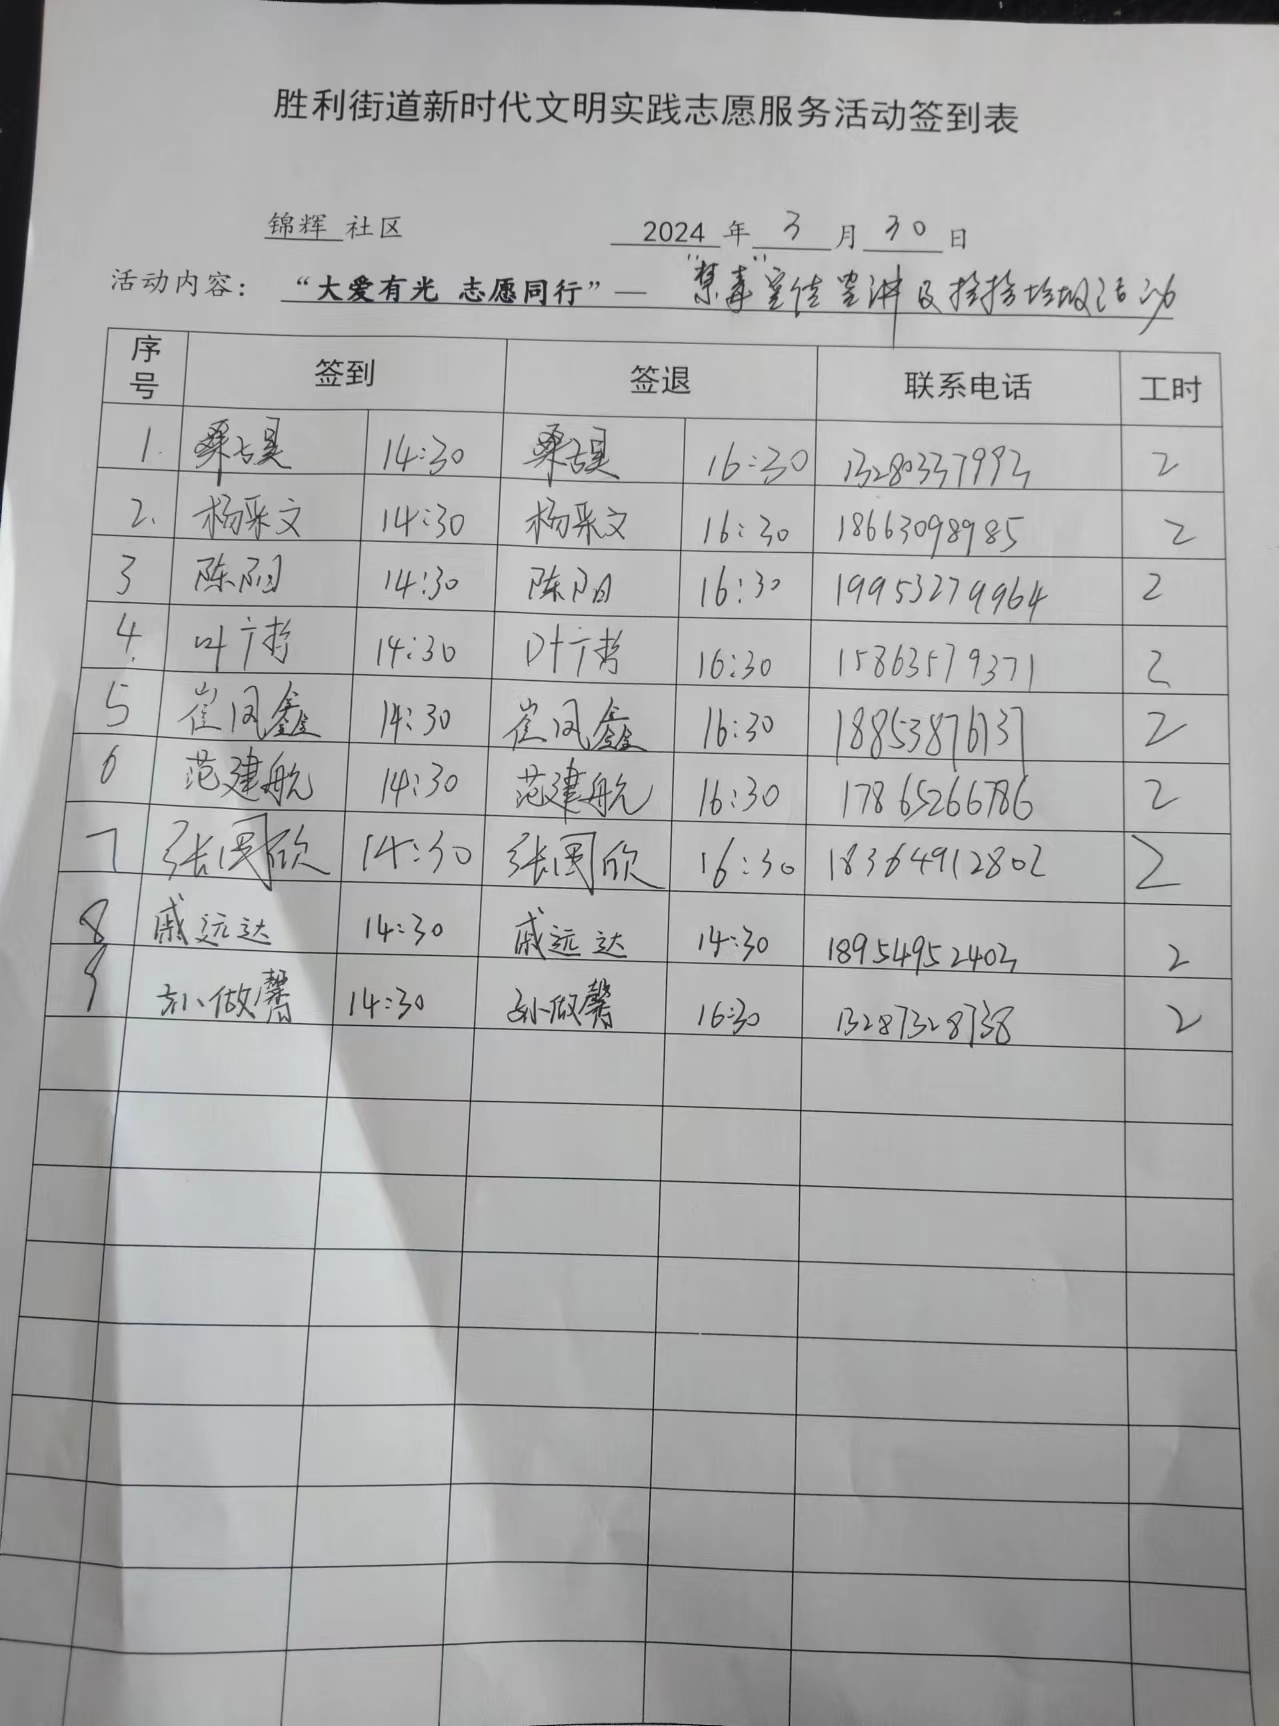 胜利街道新时代文明实践志愿服务活动签到表
锦辉 社区 2024 年 3 月 30 日
活动内容： “大爱有光 志愿同行”— “禁毒”宣传宣讲及捡拾垃圾活动
序号 签到 签退 联系电话 工时
1. 桑吉昊 14:30 桑吉昊 16:30 13280337993 2
2. 杨采文 14:30 杨采文 16:30 18663098985 2
3 陈阳 14:30 陈阳 16:30 19953279964 2
4. 叶广哲 14:30 叶广哲 16:30 15863579371 2
5 崔凤鑫 14:30 崔凤鑫 16:30 18853876137 2
6 范建航 14:30 范建航 16:30 17865266786 2
7 张国欣 14:30 张国欣 16:30 18364912802 2
8 戚远达 14:30 戚远达 14:30 18954952403 2
9 孙做馨 14:30 孙做馨 16:30 13287328738 2